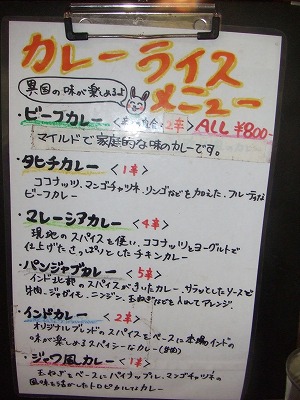 カレーライス
メニュー
異国の味が楽しめるよ
・ビーフカレー 2辛 ALL ¥800-
マイルドで家庭的な味のカレーです。
・タヒチカレー <1辛>
ココナッツ、マンゴチャツネ、リンゴなどを加えた、フルーティな
ビーフカレー
・マレーシアカレー <4辛>
現地のスパイスを使い、ココナッツとヨーグルトで
仕上げたさっぱりとしたチキンカレー
・パンジャブカレー <5辛>
インド北部のスパイスがきいたカレー、サラッとしたソースと
牛肉、ジャガイモ、ニンジン、玉ねぎなどを入れてアレンジ
・インドカレー <2辛>
オリジナルブレンドのスパイスをベースに本場のインドの
味が楽しめるスパイシーなカレー
・ジャワ風カレー <1辛>
玉ねぎをベースにパイナップル、マンゴチャツネの
風味を活かしたトロピカルなカレー